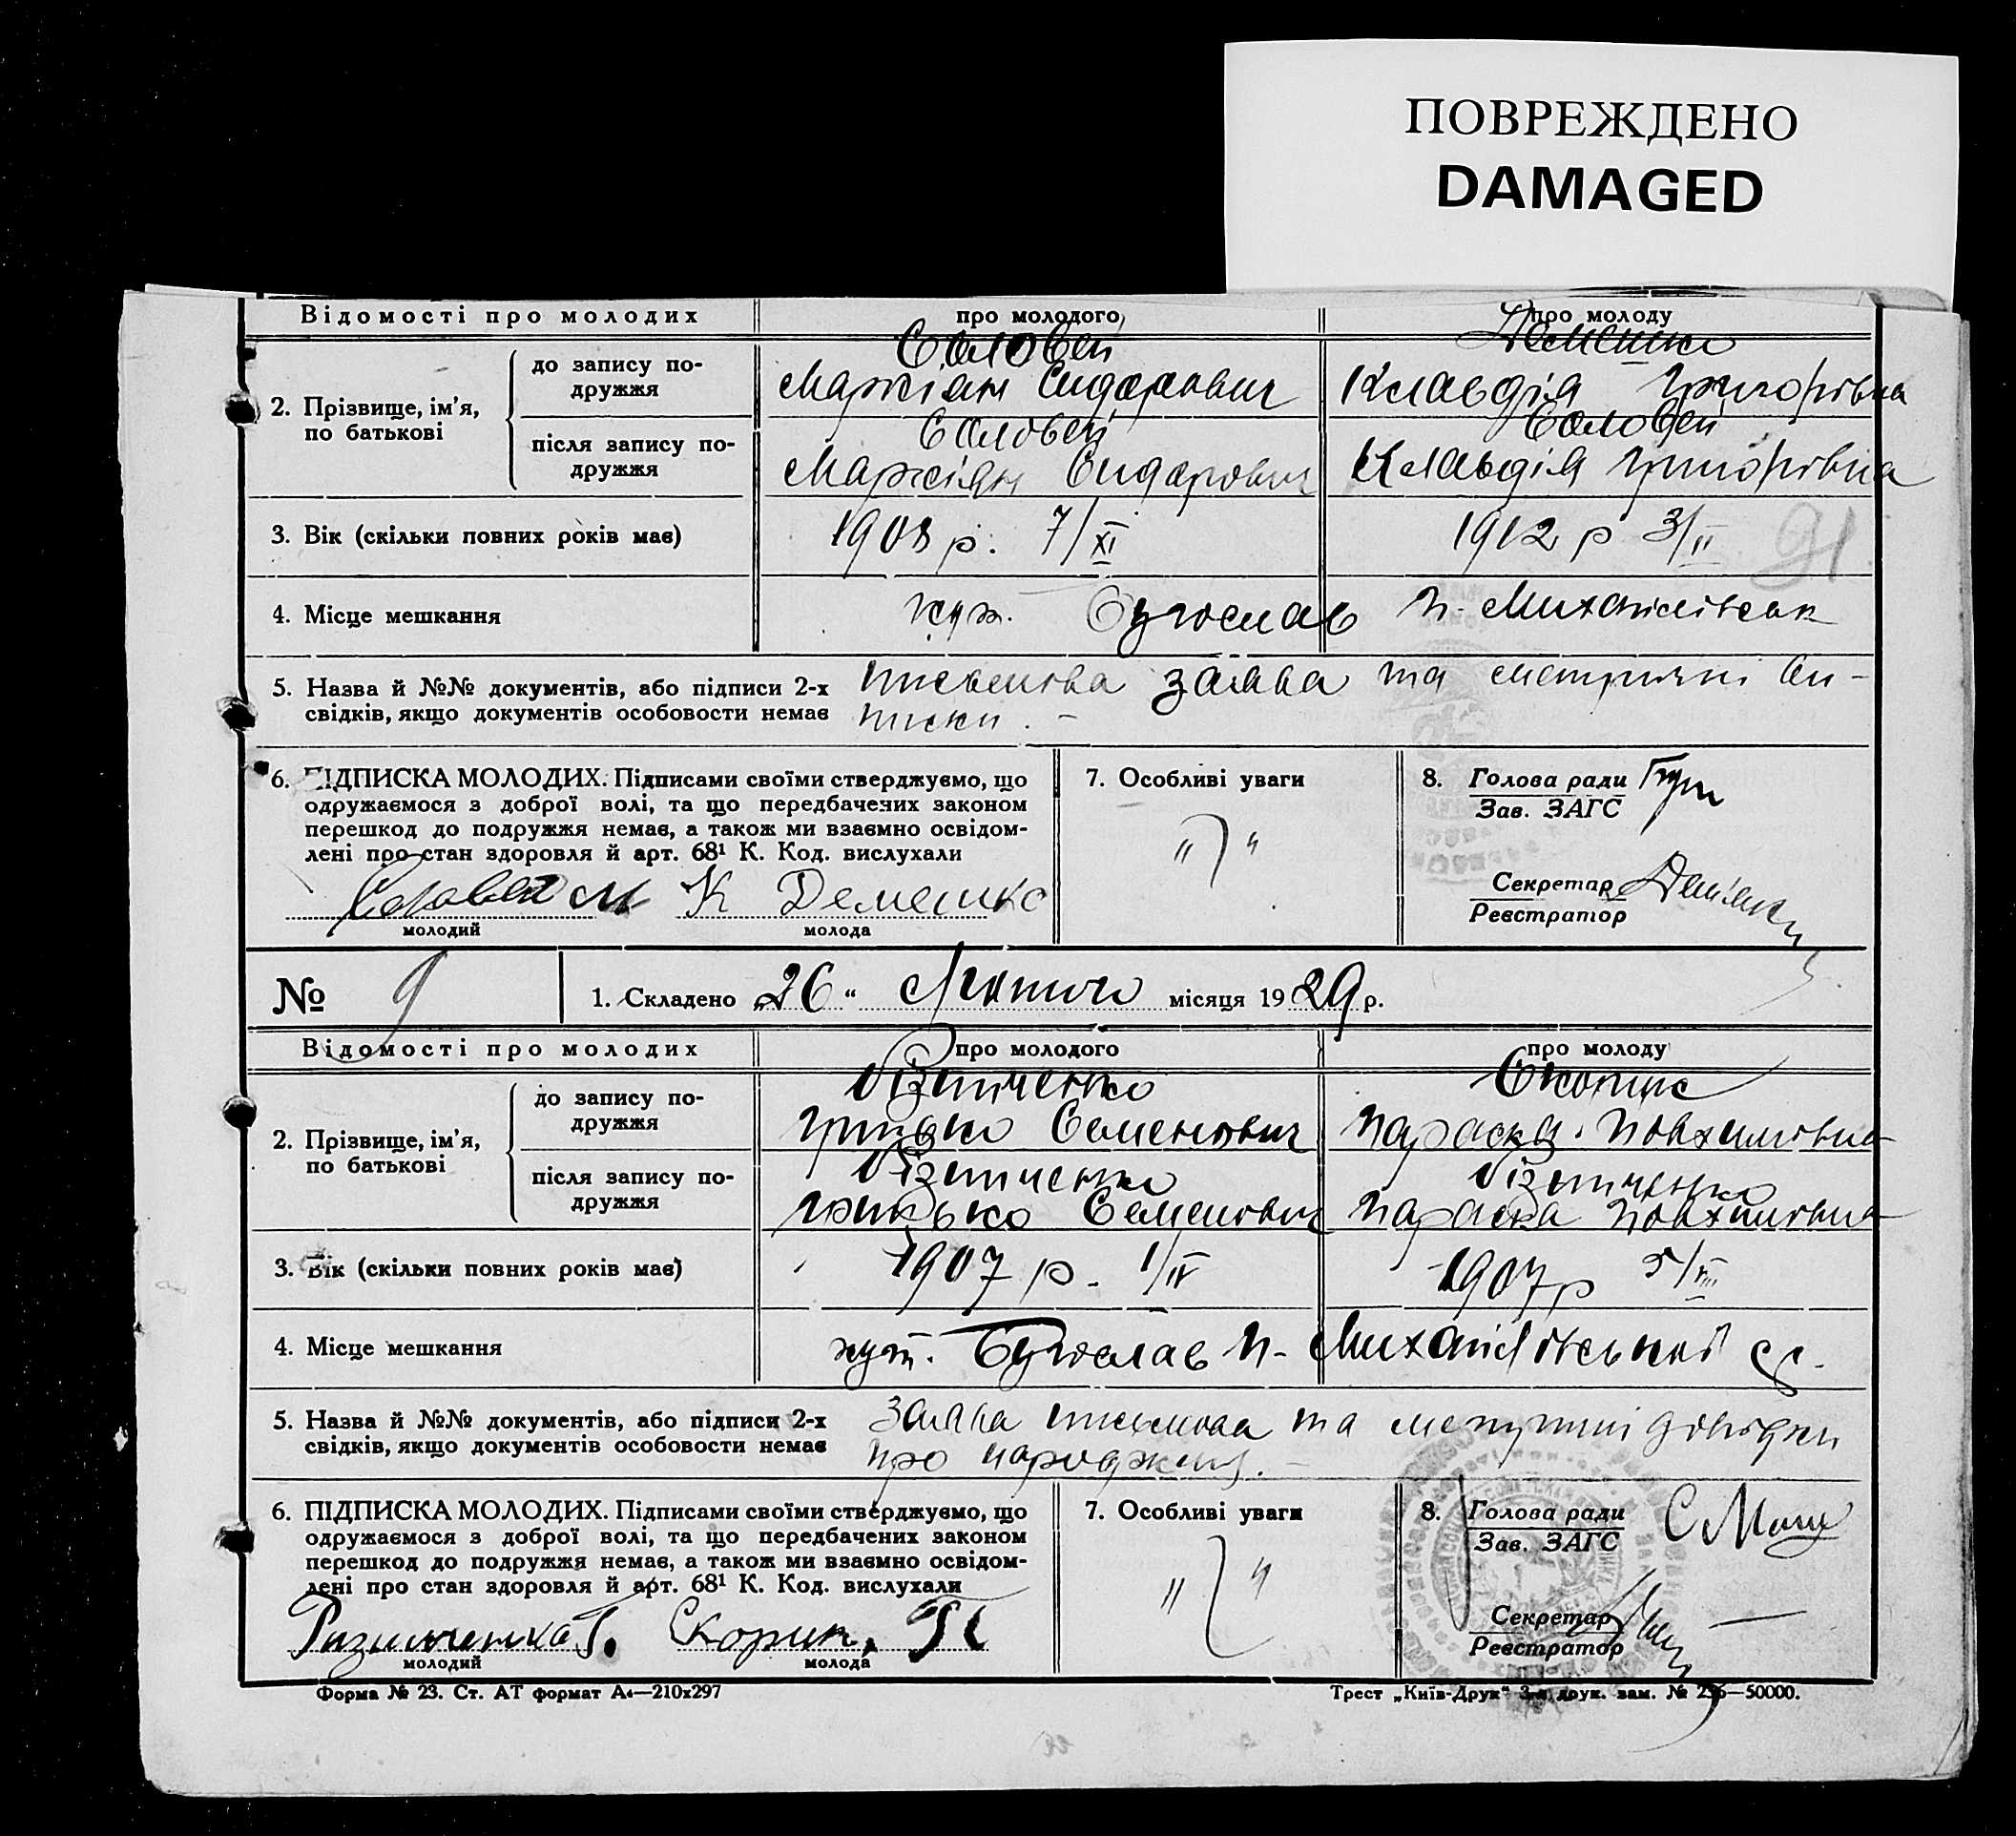 ПОВРЕЖДЕНО
DAMAGED
Відомості про молодих
про молодого
про молоду
2. Прізвище, ім'я, по батькові
до запису подружжя
Соловей
Маркіян Сидорович
Демешко
Клавдія Григорівна
після запису подружжя
Соловей
Маркіян Сидорович
Соловей
Клавдія Григорівна
3. Вік (скільки повних років має)
1908 р. 7/XI
1912 р 3/II
91
4. Місце мешкання
хут. Бугослав
п-Михайлівськ
5. Назва й №№ документів, або підписи 2-х
свідків, якщо документів особовости немає
письмова заява та метричні ви-
писки. –
6. ПІДПИСКА МОЛОДИХ. Підписами своїми стверджуємо, що
одружаємося з доброї волі, та що передбачених законом
перешкод до подружжя немає, а також ми взаємно освідом-
лені про стан здоровля й арт. 68¹ К. Код. вислухали
Соловей М
молодий
К Демешко
молода
7. Особливі уваги
8. Голова ради
Зав. ЗАГС
Секретар
Реєстратор
№ 9
1. Складено „26“ Лютого місяця 1929 р.
Відомості про молодих
про молодого
про молоду
2. Прізвище, ім'я, по батькові
до запису подружжя
Різниченко
Грицько Семенович
Скопик
Параска Повхимовна
після запису подружжя
Різниченко
Грицько Семенович
Різниченко
Параска Повхимовна
3. Вік (скільки повних років має)
1907 р. 1/IV
1907 р 5/VIII
4. Місце мешкання
хут. Бугослав п-Михайлівської с/р.
5. Назва й №№ документів, або підписи 2-х
свідків, якщо документів особовости немає
заява письмова та метричні довідки
про народження. –
6. ПІДПИСКА МОЛОДИХ. Підписами своїми стверджуємо, що
одружаємося з доброї волі, та що передбачених законом
перешкод до подружжя немає, а також ми взаємно освідом-
лені про стан здоровля й арт. 68¹ К. Код. вислухали
молодий
молода
7. Особливі уваги
8. Голова ради
Зав. ЗАГС
Секретар
Реєстратор
Форма № 23. Ст. АТ формат А₄—210х297
Трест „Київ-Друк“ 3-я друк. зам. № —50000.